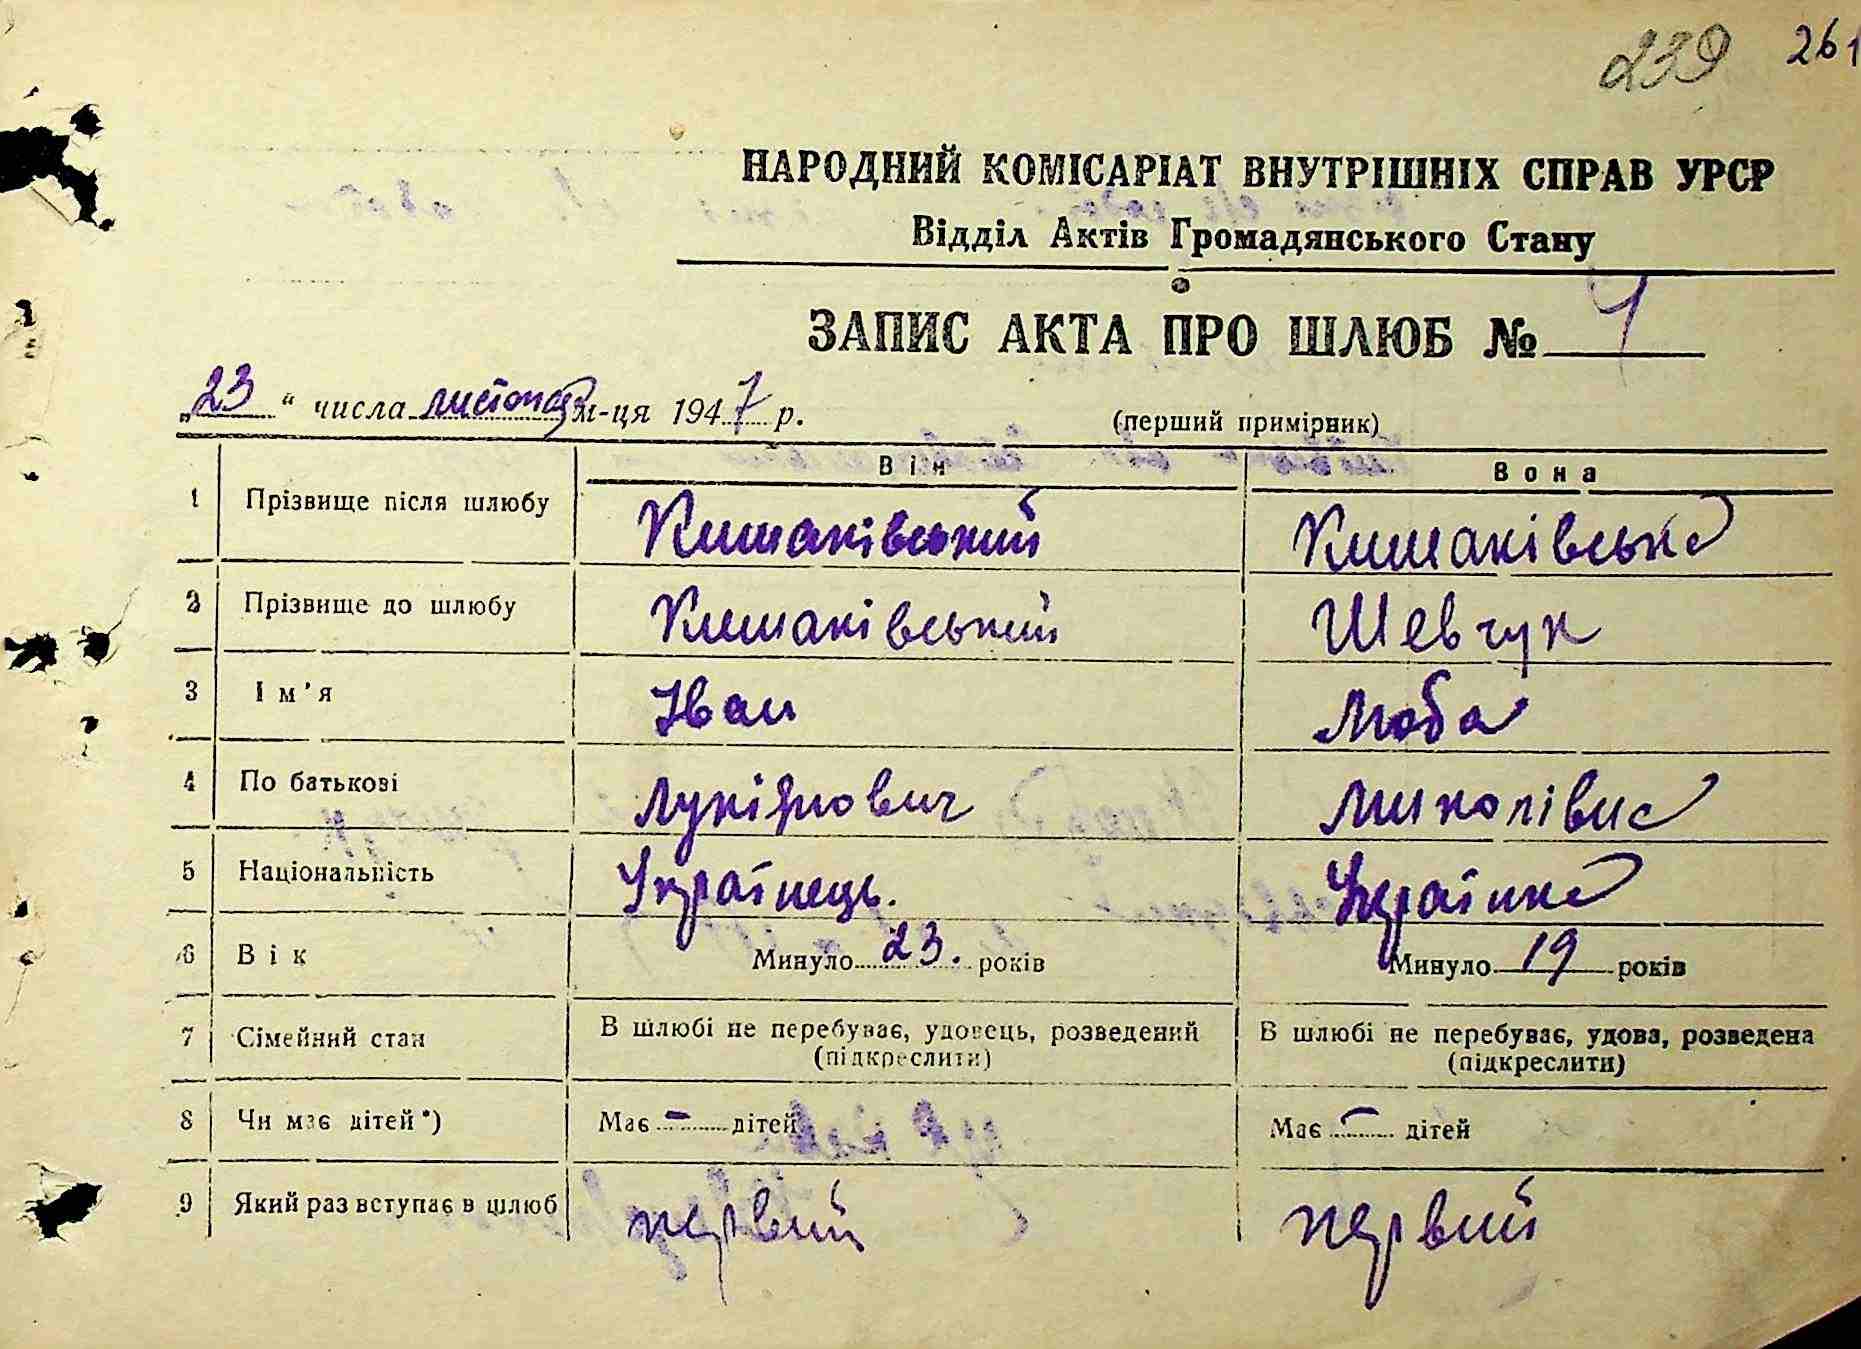 239 261
НАРОДНИЙ КОМІСАРІАТ ВНУТРІШНІХ СПРАВ УРСР
Відділ Актів Громадянського Стану
ЗАПИС АКТА ПРО ШЛЮБ №
„23“ числа листопад м-ця 1947 р. (перший примірник)
Він Вона
1 Прізвище після шлюбу Кишаківський Кишаківська
2 Прізвище до шлюбу Кишаківський Шевчук
3 Ім'я Іван Люба
4 По батькові Лукінович Миколівна
5 Національність Українець. Українка
6 Вік Минуло 23. років Минуло 19 років
7 Сімейний стан В шлюбі не перебуває, удовець, розведений В шлюбі не перебуває, удова, розведена
(підкреслити) (підкреслити)
8 Чи має дітей*) Має – дітей Має – дітей
9 Який раз вступає в шлюб первий первий